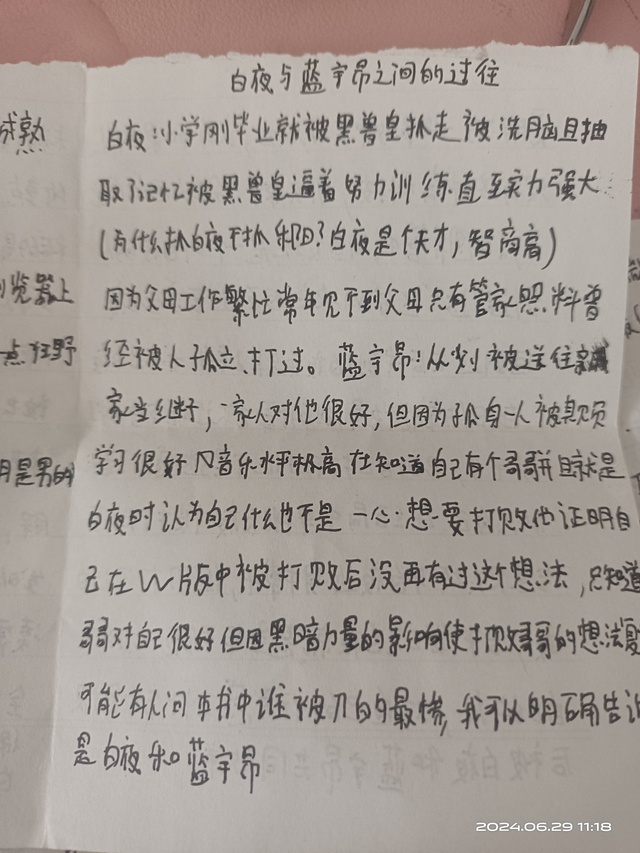 白夜与蓝宇昂之间的过往
白夜：小学刚毕业就被黑兽皇抓走被洗脑且抽
取了记忆被黑兽皇逼着努力训练直至实力强大
(为什么抓白夜不抓 白夜是个天才，智商高)
因为父母工作繁忙常年见不到父母只有管家照料曾
经被人孤立、打过。蓝宇昂：从 被送往
家当继子，一家人对他很好，但因为孤身一人被欺负
学习很好 音乐水平极高在知道自己有个哥哥并且就是
白夜时认为自己什么也不是一心想要打败他证明自
己在W版中被打败后没再有过这个想法，只知道
哥对自己很好但因黑暗力量的影响使打败哥哥的想法
可能有人问 本书中谁被刀的最惨，我可以明确告诉
是白夜和蓝宇昂
成熟
浏览器上
点狂野
月是男的
2024.06.29 11:18